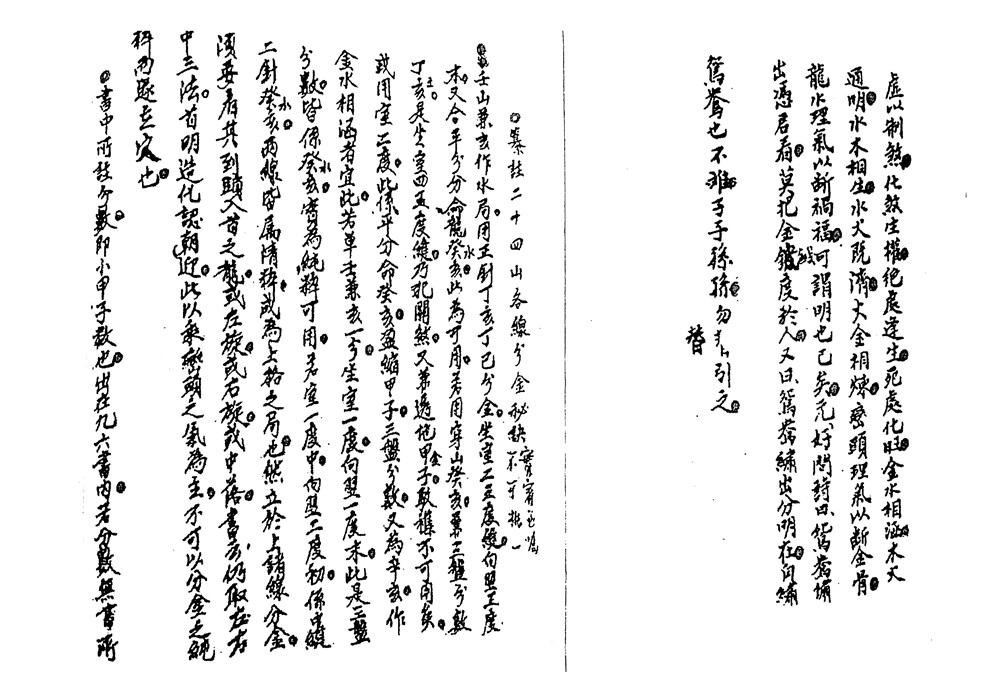 虛以制煞化煞生權絕處逢生死處化旺金水相涵木火
通明水木相生水火既濟火金相煉巒頭理氣以斷金骨
龍水理氣以斷禍福可謂明也已矣元好問詩曰鴛鴦繡
出憑君看莫把金鍼度於人又曰鴛鴦繡出分明在自繡
鴛鴦也不難子子孫孫勿引之
替
纂註二十四山各線分金秘訣
壬山兼亥作水局用正針丁亥丁巳分金坐室二三度縫向翌三度
末又合平分分命龍癸亥此為可用若用穿山癸亥第三盤分數
水
丁亥是坐室四五度縫乃犯關煞又兼透他甲子數雜不可用矣
土
金
或用室二度此係平分命癸亥盈縮甲子三盤分數又為辛亥作
金水相涵者宜此若單壬兼亥一分坐室一度向翌一度末此是三盤
分數皆係癸亥客為純粹可用若室一度中向翌二度初係中縫
水
二針癸亥兩線皆屬清粹或為上格之局也然立於上諸線分金
水
須要看其到頭入首之龍或左旋或右旋或中落書云仍取左右
中三法首明造化認朝迎此以乘巒頭之氣為主不可以分金之純
粹而遷去穴也
書中所註分數即小甲子數也出在九六書內若分數無書所